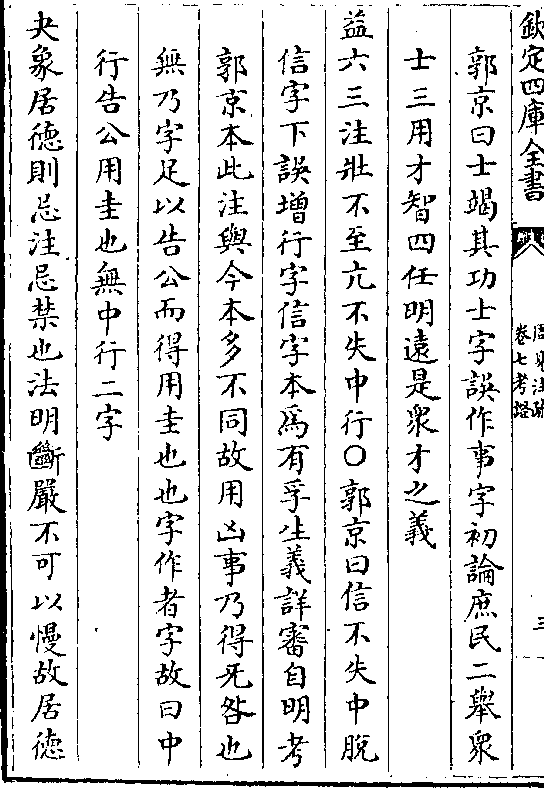 欽定四庫全書
周易注疏
卷七考證
三
郭京曰士竭其功士字誤作事字初論庶民二舉衆
士三用才智四任明遠是衆才之義
益六三注壯不至亢不失中行○郭京曰信不失中脫
信字下誤增行字信字本為有孚生義詳審自明考
郭京本此注與今本多不同故用凶事乃得无咎也
無乃字足以告公而得用圭也也字作者字故曰中
行告公用圭也無中行二字
夬象居德則忌注忌禁也法明斷嚴不可以慢故居德